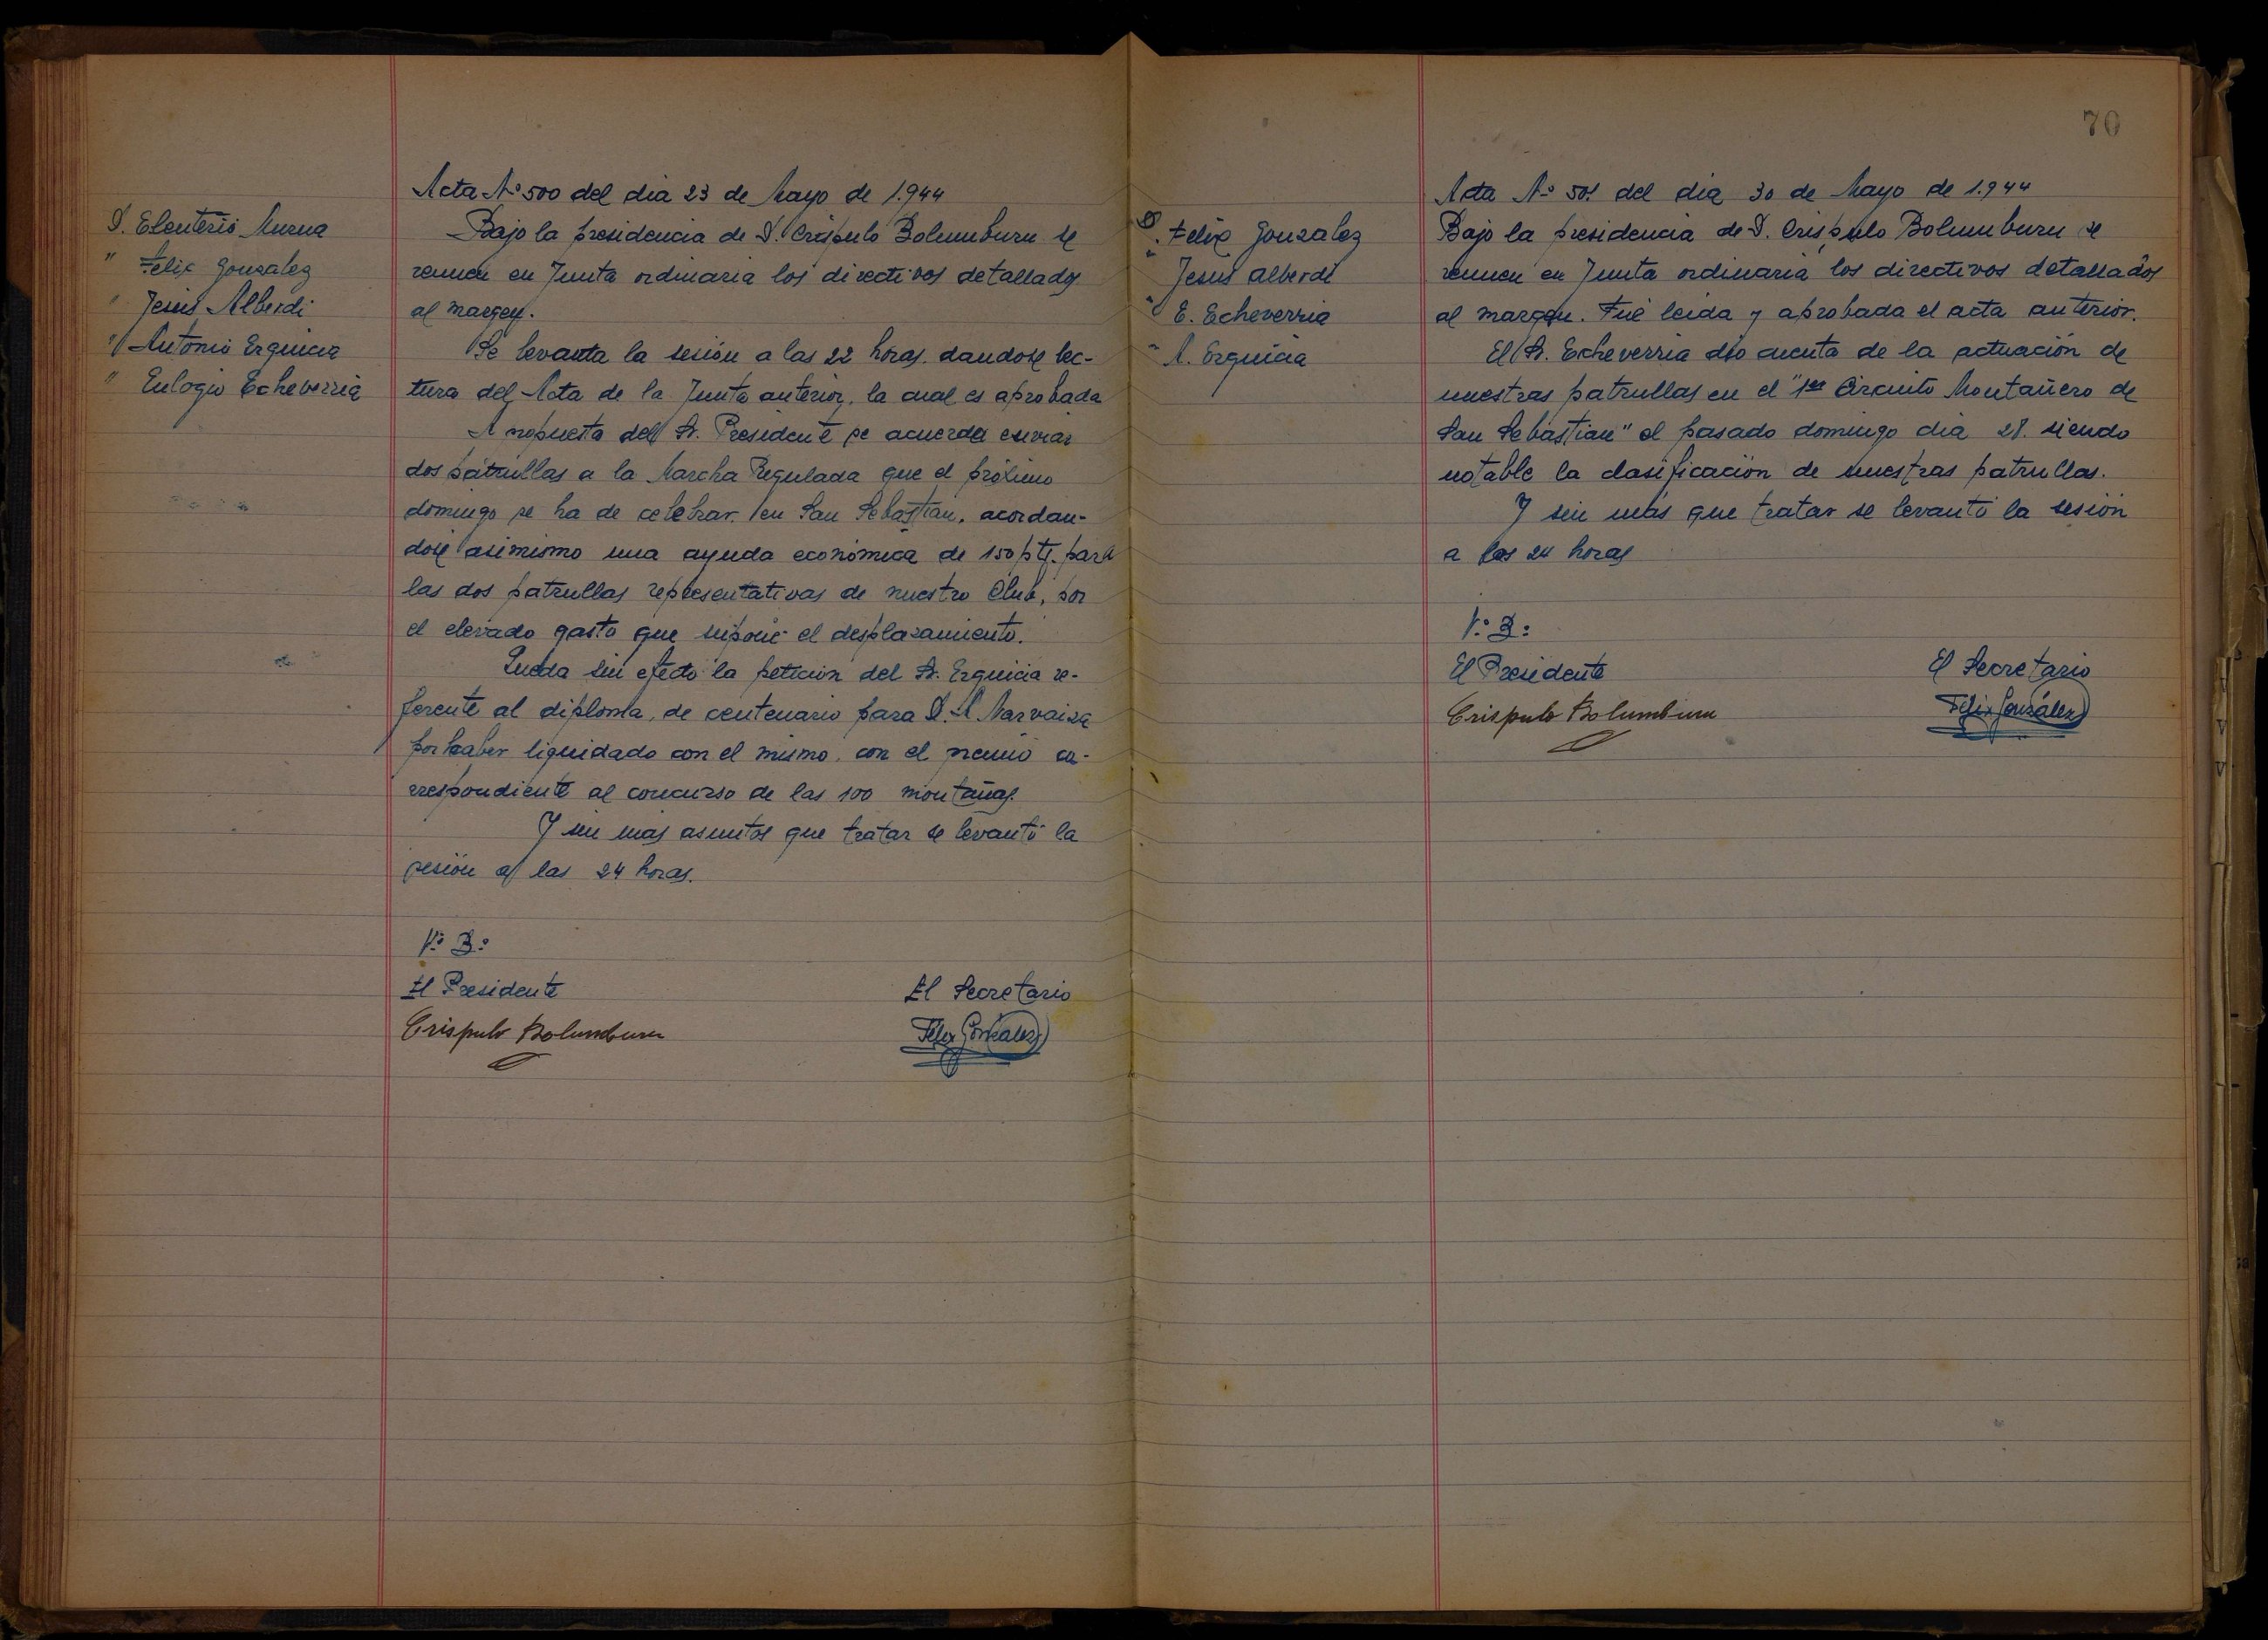 D. Eleuterio Murua
" Felix Gonzalez
" Jesus Alberdi
" Antonio Erquicia
" Eulogio Echeverria
Acta Nº 500 del dia 23 de Mayo de 1.944
Bajo la presidencia de D. Crispulo Bolumburu se
reunen en Junta ordinaria los directivos detallados
al margen.
Se levanta la sesión a las 22 horas. dandose lec-
tura del Acta de la Junta anterior, la cual es aprobada
A propuesta del Sr. Presidente se acuerda enviar
dos patrullas a la Marcha Regulada que el próximo
domingo se ha de celebrar en San Sebastian, acordan-
dose asimismo una ayuda económica de 150 pts. para
las dos patrullas representativas de nuestro Club, por
el elevado gasto que supone el desplazamiento.
Queda sin efecto la petición del Sr. Erquicia re-
ferente al diploma, de centenario para D. A. Narvaiza
por haber liquidado con el mismo, con el premio co-
rrespondiente al concurso de las 100 montañas.
Y sin mas asuntos que tratar se levantó la
sesión a las 24 horas.
Vº Bº
El Presidente
El Secretario
Crispulo Bolumburu
Felix González
70
D. Felix Gonzalez
" Jesus Alberdi
" E. Echeverria
" A. Erquicia
Acta Nº 501 del dia 30 de Mayo de 1.944
Bajo la presidencia de D. Crispulo Bolumburu se
reunen en Junta ordinaria los directivos detallados
al margen. Fué leida y aprobada el acta anterior.
El Sr. Echeverria dio cuenta de la actuación de
nuestras patrullas en el "1er Circuito Montañero de
San Sebastian" el pasado domingo dia 28. siendo
notable la clasificación de nuestras patrullas.
Y sin más que tratar se levantó la sesión
a las 24 horas
Vº Bº
El Presidente
El Secretario
Crispulo Bolumburu
Felix González